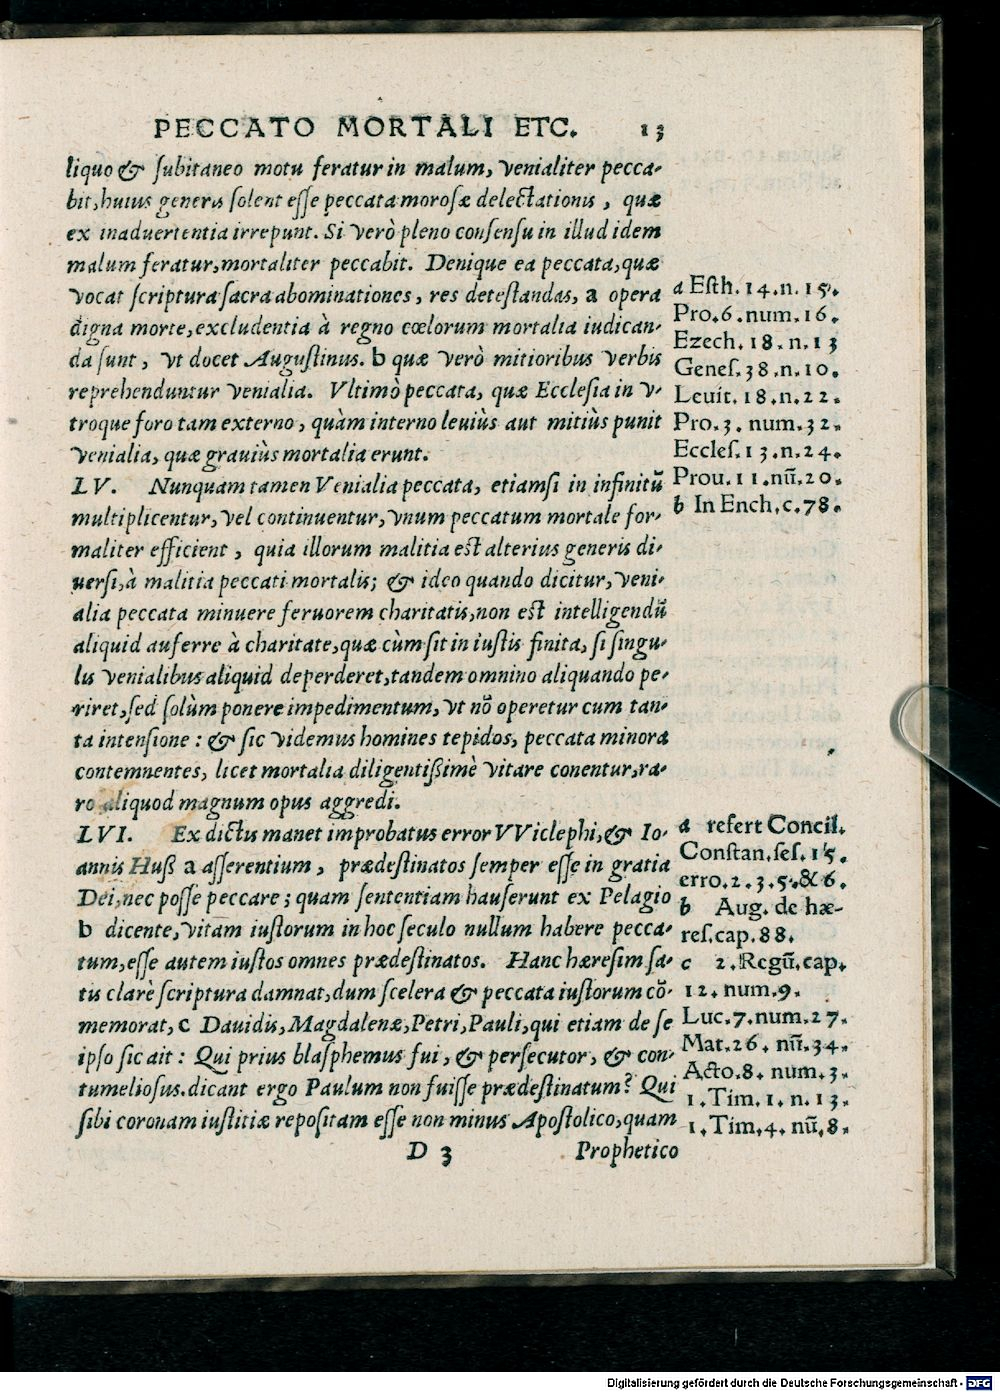 PECCATO MORTALI ETC. 13
liquo & subitaneo motu feratur in malum, venialiter pecca-
bit, huius generis solent esse peccata morosæ delectationis, quæ
ex inaduertentia irrepunt. Si verò pleno consensu in illud idem
malum feratur, mortaliter peccabit. Denique ea peccata, quæ
vocat scriptura sacra abominationes, res detestandas, a opera
digna morte, excludentia à regno cœlorum mortalia iudican-
da sunt, vt docet Augustinus. b quæ verò mitioribus verbis
reprehenduntur venialia. Vltimò peccata, quæ Ecclesia in v-
troque foro tam externo, quàm interno leuiùs aut mitiùs punit
venialia, quæ grauiùs mortalia erunt.
LV. Nunquam tamen Venialia peccata, etiamsi in infinitũ
multiplicentur, vel continuentur, vnum peccatum mortale for-
maliter efficient, quia illorum malitia est alterius generis di-
uersi, à malitia peccati mortalis; & ideo quando dicitur, veni-
alia peccata minuere feruorem charitatis, non est intelligendũ
aliquid auferre à charitate, quæ cùm sit in iustis finita, si singu-
lis venialibus aliquid deperderet, tandem omnino aliquando pe-
riret, sed solùm ponere impedimentum, vt nõ operetur cum tan-
ta intensione: & sic videmus homines tepidos, peccata minora
contemnentes, licet mortalia diligentißimè vitare conentur, ra-
ro aliquod magnum opus aggredi.
LVI. Ex dictis manet improbatus error VViclephi, & Io-
annis Huß a asserentium, prædestinatos semper esse in gratia
Dei, nec posse peccare; quam sententiam hauserunt ex Pelagio
b dicente, vitam iustorum in hoc seculo nullum habere pecca-
tum, esse autem iustos omnes prædestinatos. Hanc hæresim sa-
tis clarè scriptura damnat, dum scelera & peccata iustorum cõ-
memorat, c Dauidis, Magdalenæ, Petri, Pauli, qui etiam de se
ipso sic ait: Qui prius blasphemus fui, & persecutor, & con-
tumeliosus. dicant ergo Paulum non fuisse prædestinatum? Qui
sibi coronam iustitiæ repositam esse non minus Apostolico, quam
D 3 Prophetico
a Esth. 14. n. 15.
Pro. 6. num. 16.
Ezech. 18. n. 13
Genes. 38. n. 10.
Leuit. 18. n. 22.
Pro. 3. num. 32.
Eccles. 13. n. 24.
Prou. 11. nũ. 20.
b In Ench. c. 78.
a refert Concil.
Constan. ses. 15.
erro. 2. 3. 5. & 6.
b Aug. de hæ-
res. cap. 88.
c 2. Regũ. cap.
12. num. 9.
Luc. 7. num. 27.
Mat. 26. nũ. 34.
Acto. 8. num. 3.
1. Tim. 1. n. 13.
1. Tim. 4. nũ. 8.
Digitalisierung gefördert durch die Deutsche Forschungsgemeinschaft - DFG